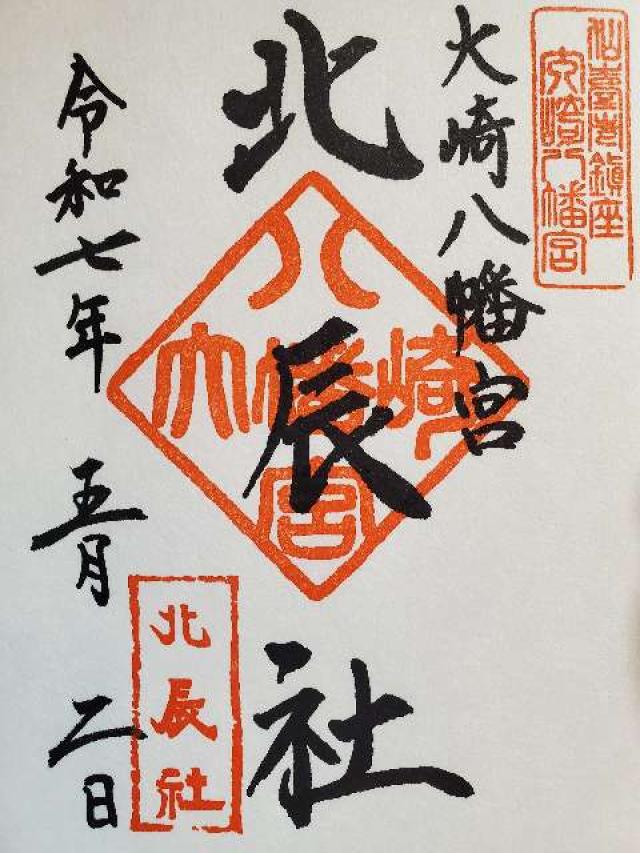 仙臺市鎮座
大崎八幡宮
大崎八幡宮
北辰社
八
大幡崎
宮
北辰社
令和七年 五月 二日